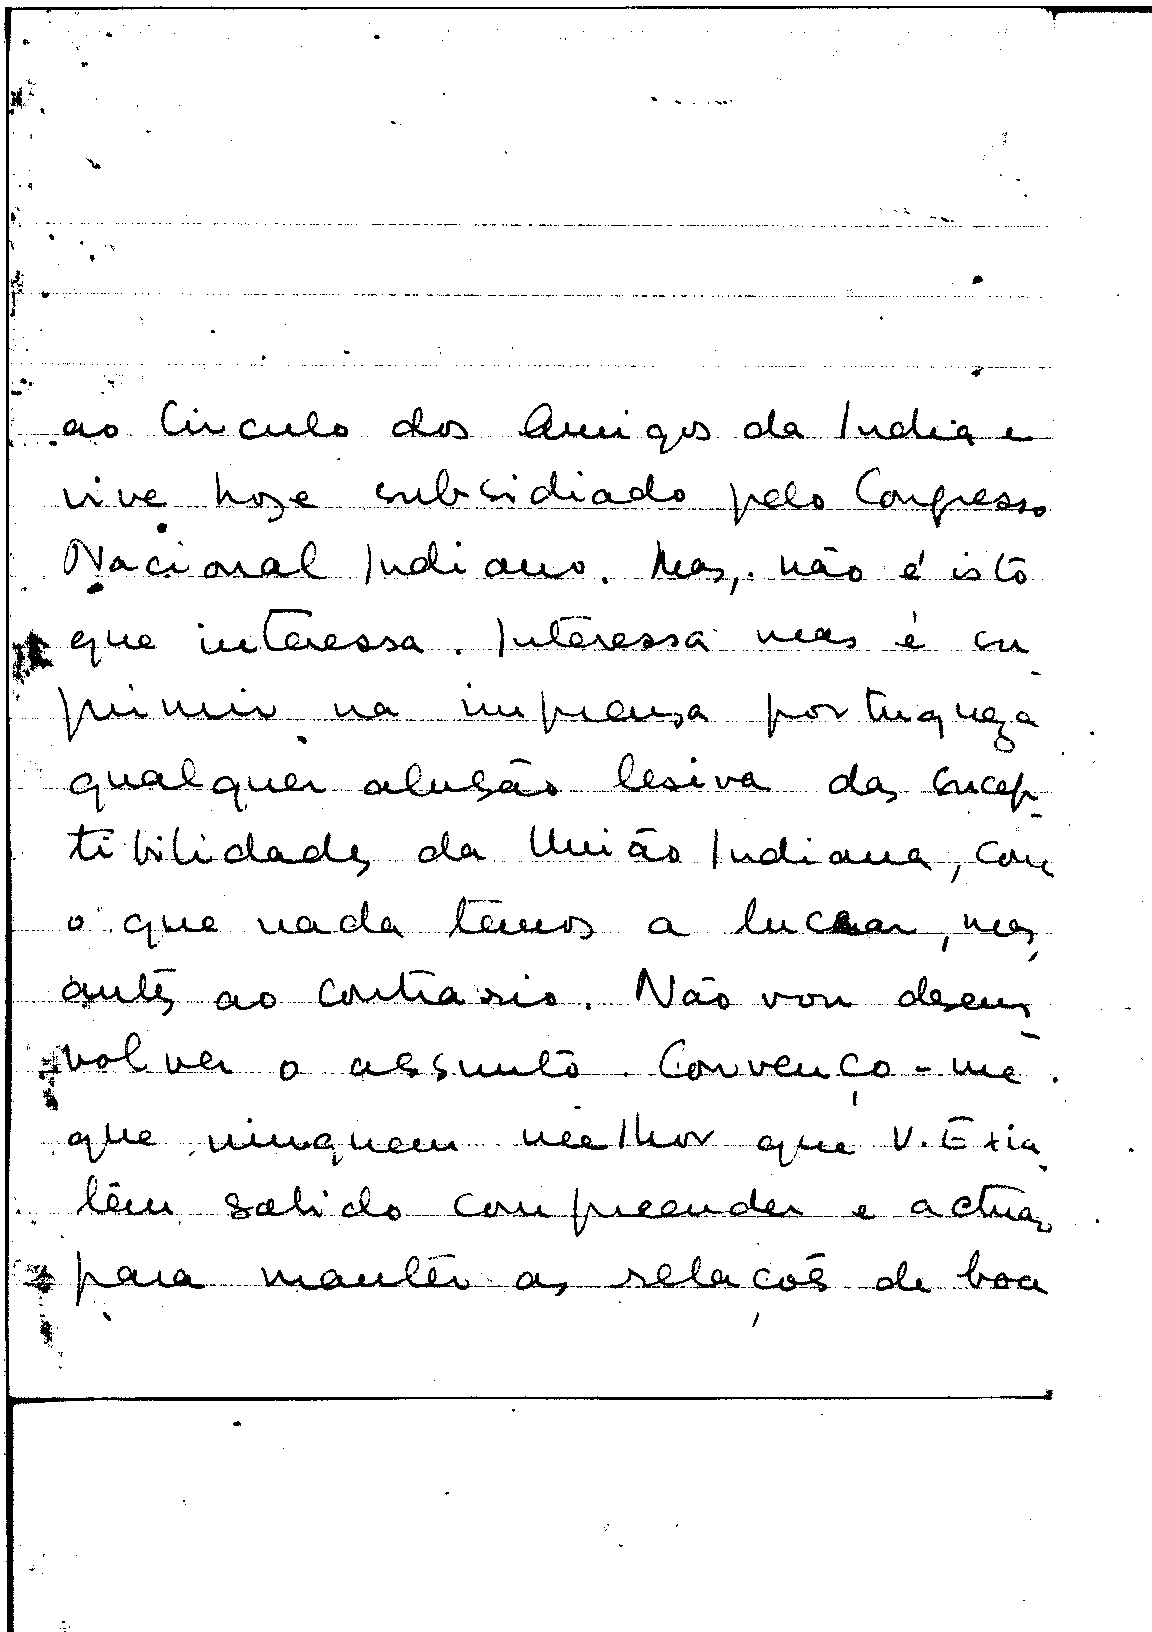 ao Circulo dos Amigos da India e
vive hoje subsidiado pelo Congresso
Nacional Indiano. Mas, não é isto
que interessa. Interessa mas é su
primir na imprensa portugueza
qualquer alusão lesiva das sucep-
tibilidades da União Indiana, com
o que nada temos a lucrar, mas
antes ao contrario. Não vou desen-
volver o assunto. Convenço-me
que ninguem melhor que V. Exia
têm sabido compreender e actuar
para mantêr as relações de boa